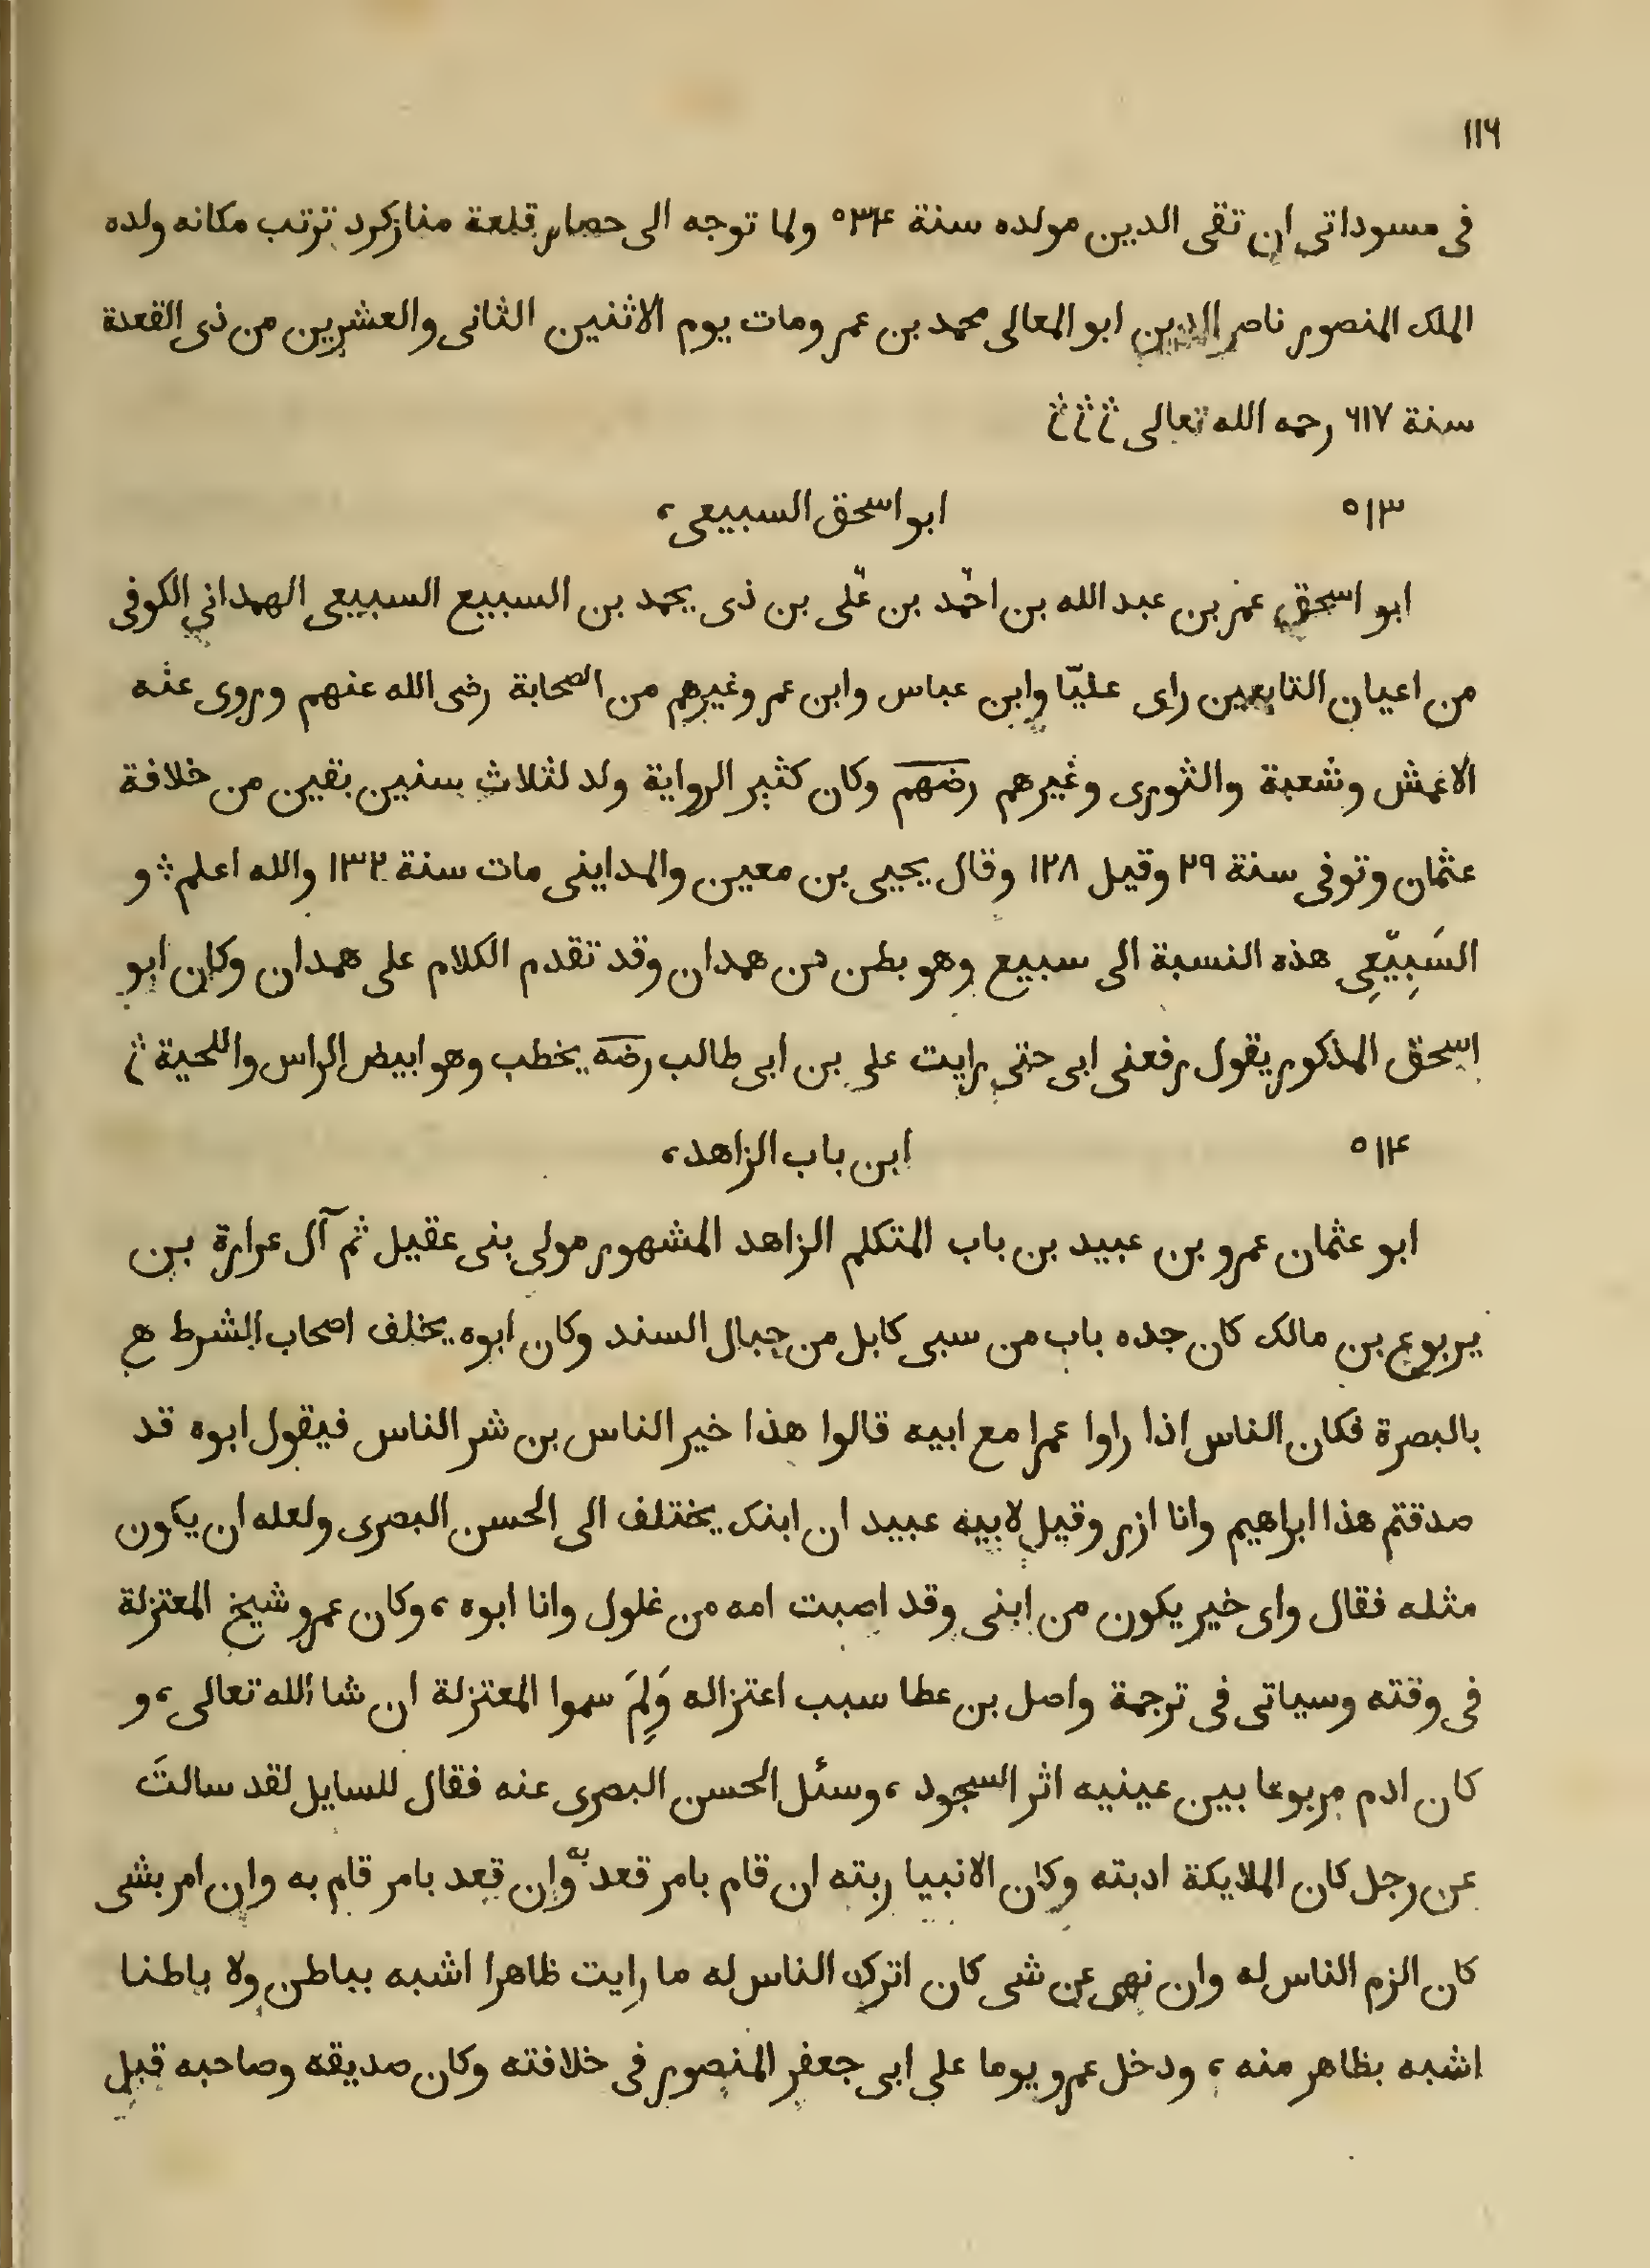 ١١٦
فى مسوداتى ان تقى الدين مولده سنة ٥٣٤ ولما توجه الى حصار قلعة منازكرد ترتب مكانه ولده
الملك المنصور ناصر الدين ابو المعالى محمد بن عمر ومات يوم الاثنين الثانى والعشرين من ذى القعدة
سنة ٦١٧ رحمه الله تعالى
٥١٣ ابو اسحق السبيعى،
ابو اسحق عمر بن عبد الله بن احمد بن على بن ذى يحمد بن السبيع السبيعى الهمدانى الكوفى
من اعيان التابعين راى عليّا وابن عباس وابن عمر وغيرهم من الصحابة رضى الله عنهم وروى عنه
الاعمش وشعبة والثورى وغيرهم رضهم وكان كثير الرواية ولد لثلاث سنين بقين من خلافة
عثمان وتوفى سنة ٢٩ وقيل ١٢٨ وقال يحيى بن معين والمداينى مات سنة ١٣٢ والله اعلم و
السَبِيّعِى هذه النسبة الى سبيع وهو بطن من همدان وقد تقدم الكلام على همدان وكان ابو
اسحق المذكور يقول رفعنى ابى حتى رايت على بن ابى طالب رضه يخطب وهو ابيض الراس واللحية
٥١٤ ابن باب الزاهد،
ابو عثمان عمرو بن عبيد بن باب المتكلم الزاهد المشهور مولى بنى عقيل ثم آل عرارة بن
يربوع بن مالك كان جده باب من سبى كابل من جبال السند وكان ابوه يخلف اصحاب الشرط
بالبصرة فكان الناس اذا راوا عمرا مع ابيه قالوا هذا خير الناس بن شر الناس فيقول ابوه قد
صدقتم هذا ابراهيم وانا ازر وقيل لابيه عبيد ان ابنك يختلف الى الحسن البصرى ولعله ان يكون
مثله فقال واى خير يكون من ابنى وقد اصبت امه من غلول وانا ابوه، وكان عمرو شيخ المعتزلة
فى وقته وسياتى فى ترجمة واصل بن عطا سبب اعتزاله وَلِمَ سموا المعتزلة ان شا الله تعالى، و
كان ادم مربوعا بين عينيه اثر السجود، وسئل الحسن البصرى عنه فقال للسايل لقد سالتَ
عن رجل كان الملايكة ادبته وكان الانبيا ربته ان قام بامر قعد به وان قعد بامر قام به وان امر بشى
كان الزم الناس له وان نهى عن شى كان اترك الناس له ما رايت ظاهرا اشبه بباطن ولا باطنا
اشبه بظاهر منه، ودخل عمرو يوما على ابى جعفر المنصور فى خلافته وكان صديقه وصاحبه قبل